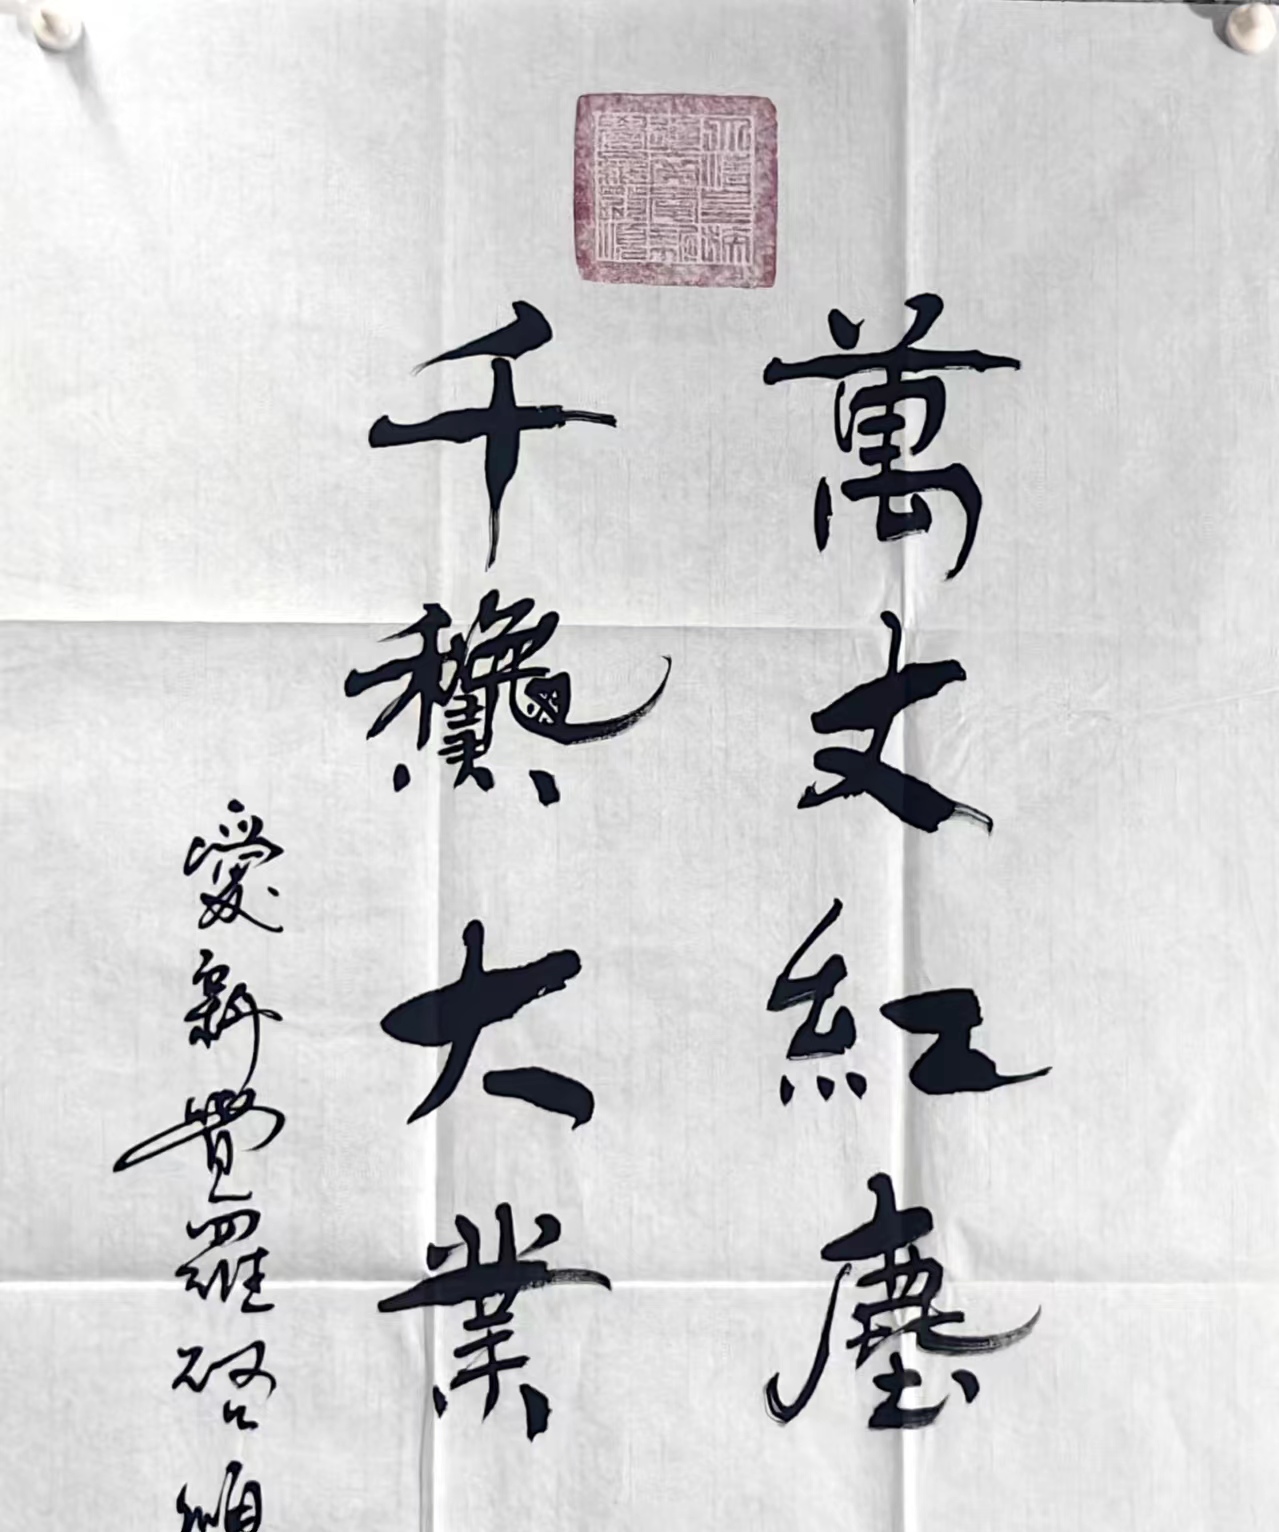 萬丈紅塵
千龝大業
愛新覺羅啓